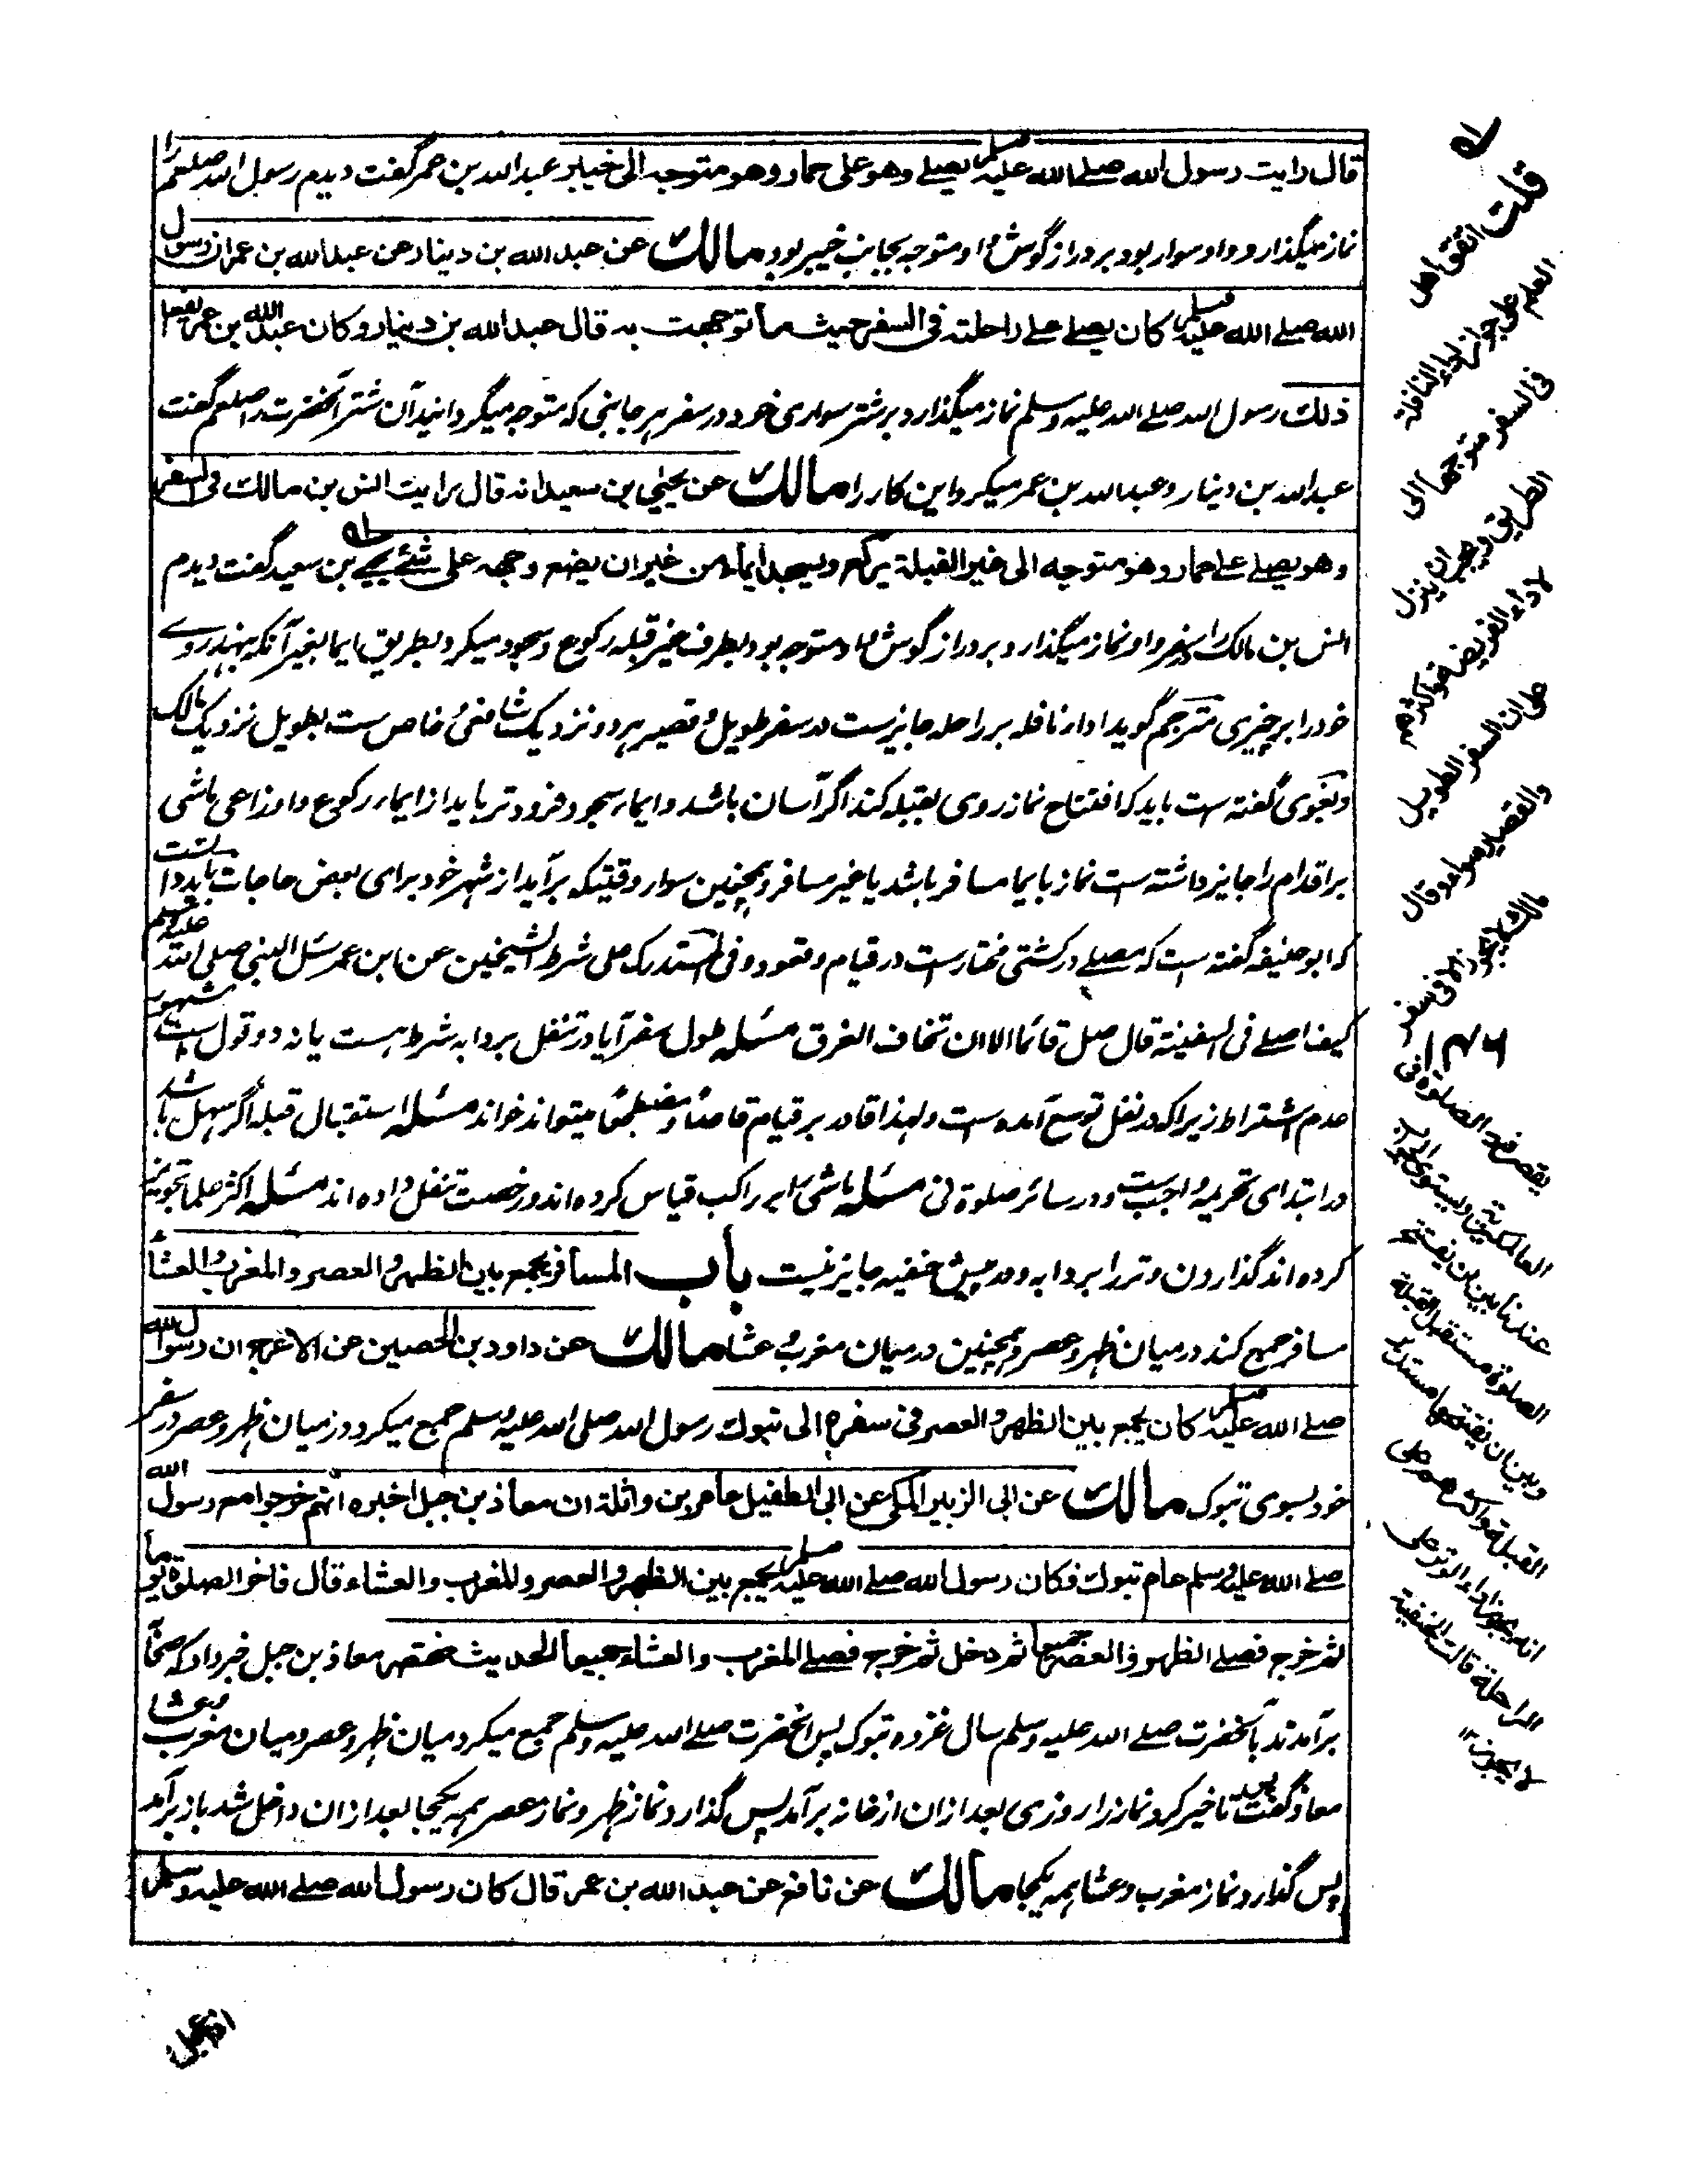 قال رايت رسول الله صلے الله عليہ وسلم يصلے وهو على حمار وهو متوجہ الى خيبر عبد الله بن عمر گفت ديدم رسول الله صلعم را
نماز ميگذارد و او سوار بود بر دراز گوش و او متوجہ بجانب خيبر بود مالك عن عبد الله بن دينار عن عبد الله بن عمر ان رسول
الله صلے الله عليہ وسلم كان يصلے علے راحلتہ فى السفر حيث ما توجهت بہ قال عبد الله بن دينار و كان عبد الله بن عمر يفعل
ذلك رسول الله صلے الله عليہ وسلم نماز ميگذارد بر شتر سوارى خود در سفر بهر جانبى كہ متوجہ ميگردانيد آن شتر آنحضرت را صلعم گفت
عبد الله بن دينار و عبد الله بن عمر ميكرد اين كار را مالك عن يحيى بن سعيد انہ قال رايت انس بن مالك فى السفر
وهو يصلے علے حمار وهو متوجہ الى غير القبلة يركع ويسجد ايماء من غير ان يضع وجهہ على شئے يحيے بن سعيد گفت ديدم
انس بن مالك را در سفر و او نماز ميگذارد بر دراز گوش و او متوجہ بود بطرف غير قبلہ ركوع و سجود ميكرد بطريق ايما بغير آنكہ بنهد روے
خود را بر چيزى مترجم گويد اداء نافلہ بر راحلہ جايزست در سفر طويل و قصير هر دو و نزديك شافعى و خاص ست بطويل نزديك مالك
و بغوى گفتہ ست بايد كہ افتتاح نماز روى بقبلہ كند اگر آسان باشد و ايماء سجود فرودتر بايد از ايماء ركوع و اوزاعى ماشى
بر اقدام را جايز داشتہ ست نماز بايما مسافر باشد يا غير مسافر و همچنين سوار وقتيكہ برآيد از شهر خود براى بعض حاجات بايد دانست
كہ ابو حنيفہ گفتہ ست كہ مصلے در كشتى مختارست در قيام و قعود و فى المستدرك على شرط الشيخين عن ابن عمر سئل النبى صلى الله عليہ وسلم
كيف اصلے فى السفينة قال صل قائما الا ان تخاف الغرق مسئلہ طول سفر آيا در تنفل بر دابہ شرط هست يا نہ دو قول ست مشهور
عدم اشتراط زيرا كہ در نفل توسع آمدہ ست ولهذا قادر بر قيام قاعدًا و مضطجعًا ميتواند خواند مسئلہ استقبال قبلہ اگر سهل باشد
در ابتداى تحريمہ واجب ست و در سائر صلوة نى مسئلہ ماشى را بر راكب قياس كردہ اند و رخصت تنفل دادہ اند مسئلہ اكثر علما تجويز
كردہ اند گذاردن وتر را بر دابہ و در پيش حنفيہ جايز نيست باب المسافر يجمع بين الظهر والعصر والمغرب والعشاء
مسافر جمع كند درميان ظهر و عصر و همچنين درميان مغرب و عشا مالك عن داود بن الحصين عن الاعرج ان رسول الله
صلے الله عليہ وسلم كان يجمع بين الظهر والعصر فى سفره الى تبوك رسول الله صلى الله عليہ وسلم جمع ميكرد درميان ظهر و عصر در سفر
خود بسوى تبوك مالك عن ابى الزبير المكى عن ابى الطفيل عامر بن واثلة ان معاذ بن جبل اخبره انهم خرجوا مع رسول الله
صلے الله عليہ وسلم عام تبوك فكان رسول الله صلے الله عليہ وسلم يجمع بين الظهر والعصر والمغرب والعشاء قال فاخر الصلوة يوما
ثم خرج فصلے الظهر والعصر جميعا ثم دخل ثم خرج فصلے المغرب والعشاء جميعا الحديث مختصر معاذ بن جبل خبر داد كہ صحابہ
برآمدند با آنحضرت صلے الله عليہ وسلم سال غزوہ تبوك پس آنحضرت صلے الله عليہ وسلم جمع ميكرد ميان ظهر و عصر و ميان مغرب و عشا
معاذ گفت پس تاخير كرد نماز را روزى بعد ازان از خانہ برآمد پس گذارد نماز ظهر و نماز عصر همہ يكجا بعد ازان داخل شد باز برآمد
پس گذارد نماز مغرب و عشا همہ يكجا مالك عن نافع عن عبد الله بن عمر قال كان رسول الله صلے الله عليہ وسلم
قلت اتفق اهل
العلم على جواز اداء النافلة
فى السفر متوجها الى
الطريق ويجب ان ينزل
لاداء الفريضة واكثرهم
على ان السفر الطويل
والقصير سواء وقال
مالك لا يجوز الا فى سفر
يقصر فيه الصلوة فى
عندنا بين ان يفتتح
الصلوة مستقبل القبلة
وبين ان يفتتحها مستدبر
القبلة واكثرهم على
انه يجوز اداء الوتر على
الراحلة وقالت الحنفية
لا يجوز ١٢
اذا عجل